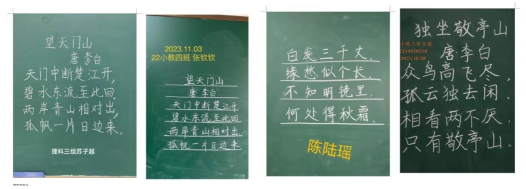 望天门山
唐李白
天门中断楚江开,
碧水东流至此回.
两岸青山相对出,
孤帆一片日边来.
理科三组苏子越
2023.11.03
22小教四班 张钦钦
望天门山
唐李白
天门中断楚江开,
碧水东流至此回.
两岸青山相对出,
孤帆一片日边来.
白发三千丈,
缘愁似个长.
不知明镜里,
何处得秋霜.
陈陆瑶
独坐敬亭山
唐李白
众鸟高飞尽,
孤云独去闲.
相看两不厌,
只有敬亭山.